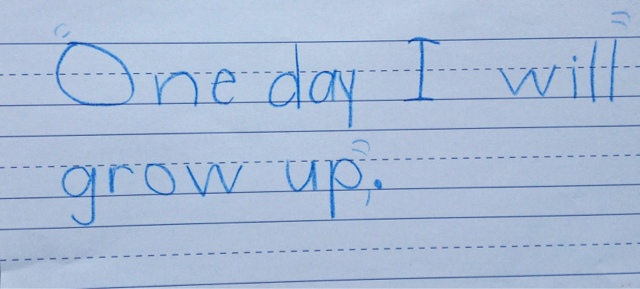 One day I will
grow up.